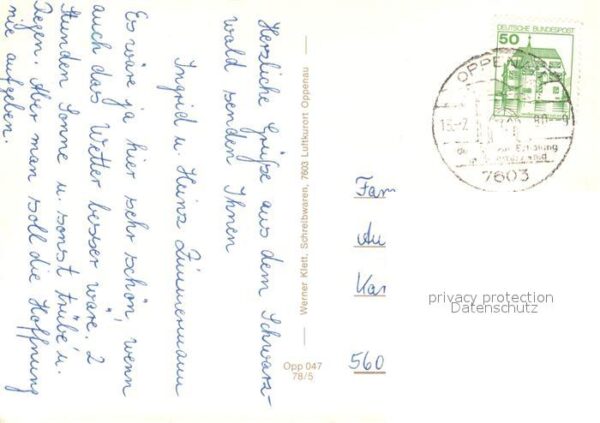 Herzliche Grüße aus dem Schwarz-
wald senden Ihnen
Ingrid u. Heinz Zimmermann
Es wäre ja hier sehr schön, wenn
auch das Wetter besser wäre. 2
Stunden Sonne u. sonst trübe u.
Regen. Aber man soll die Hoffnung
nie aufgeben.
Werner Klett, Schreibwaren, 7603 Luftkurort Oppenau
Opp 047
78/5
50
DEUTSCHE BUNDESPOST
OPPENAU
7603
Fam
Au
Kar
560
privacy protection
Datenschutz